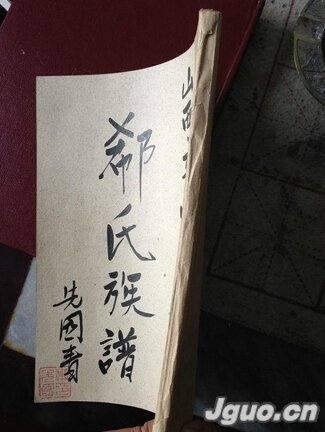 山西
郗氏族譜
先國青
Jguo.cn